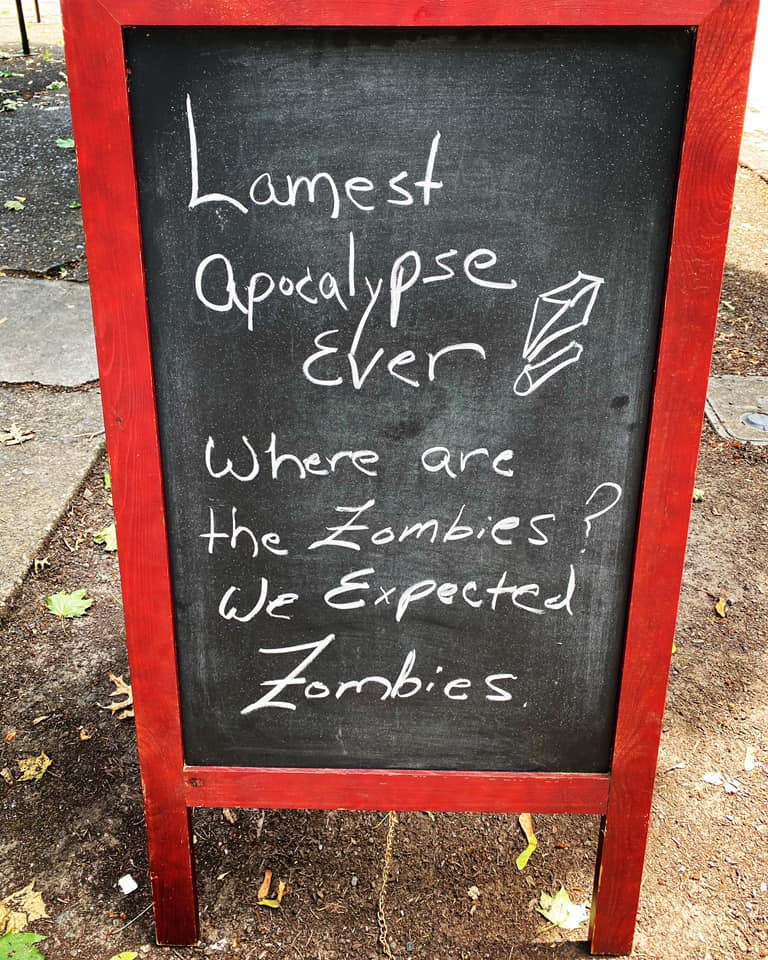 Lamest
apocalypse
Ever!
Where are
the Zombies?
We Expected
Zombies.